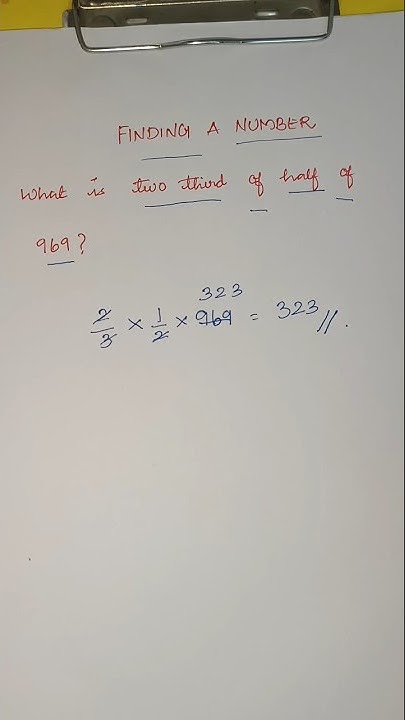 FINDING A NUMBER
What is two third of half of
969?
323
2/3 × 1/2 × 969 = 323 //.